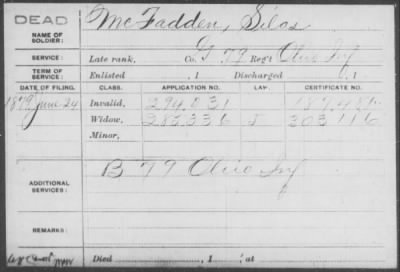 DEAD
NAME OF SOLDIER: McFadden, Silas
SERVICE: Late rank, Co. G 79 Reg't Ohio Inf
TERM OF SERVICE: Enlisted , 1 Discharged , 1
DATE OF FILING. CLASS. APPLICATION NO. LAW. CERTIFICATE NO.
1879 June 24 Invalid, 294,031
Widow, 303,116
Minor,
B 79 Ohio Inf
ADDITIONAL SERVICES:
REMARKS:
Died , 1 , at